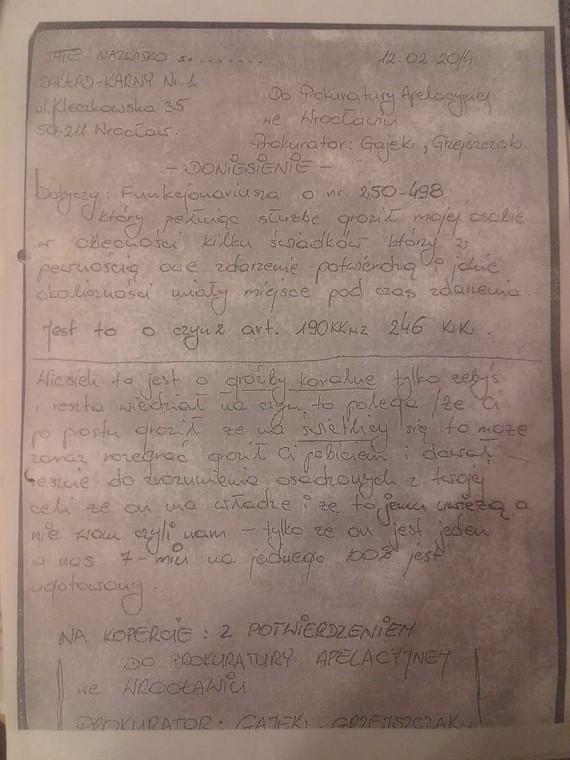 JATC NAZWISKO s. . . . . . . . . 12.02.2014
ZAKŁAD-KARNY Nr 1
ul. Kleczkowska 35
50-211 Wrocław.
Do Prokuratury Apelacyjnej
we Wrocławiu
Prokurator: Gajek, Grzejszczak.
- DONIESIENIE -
Dotyczy: Funkcjonariusza o nr. 250-498
który pełniąc służbę groził mojej osobie
w obecności kilku świadków którzy z
pewnością owe zdarzenie potwierdzą i jakie
okoliczności miały miejsce pod czas zdarzenia.
Jest to o czyn z art. 190KK 246 K.K.
Wiesiek to jest o groźby koralne tylko żebyś
i reszta wiedział na czym to polega /że Ci
po prostu groził ze na świetlicy się to może
zaraz rozegrać groził Ci pobiciem i dawał
do zrozumienia osadzonych z twojej
celi ze on ma władze i ze to jemu uwierzą a
nie wam czyli nam - tylko ze on jest jeden
a nas 7-miu na jednego 100% jest
ugotowany.
NA KOPERCIE: Z POTWIERDZENIEM
DO PROKURATURY APELACYJNEJ
we WROCŁAWIU
PROKURATOR: GAJEK, GRZEJSZCZAK.